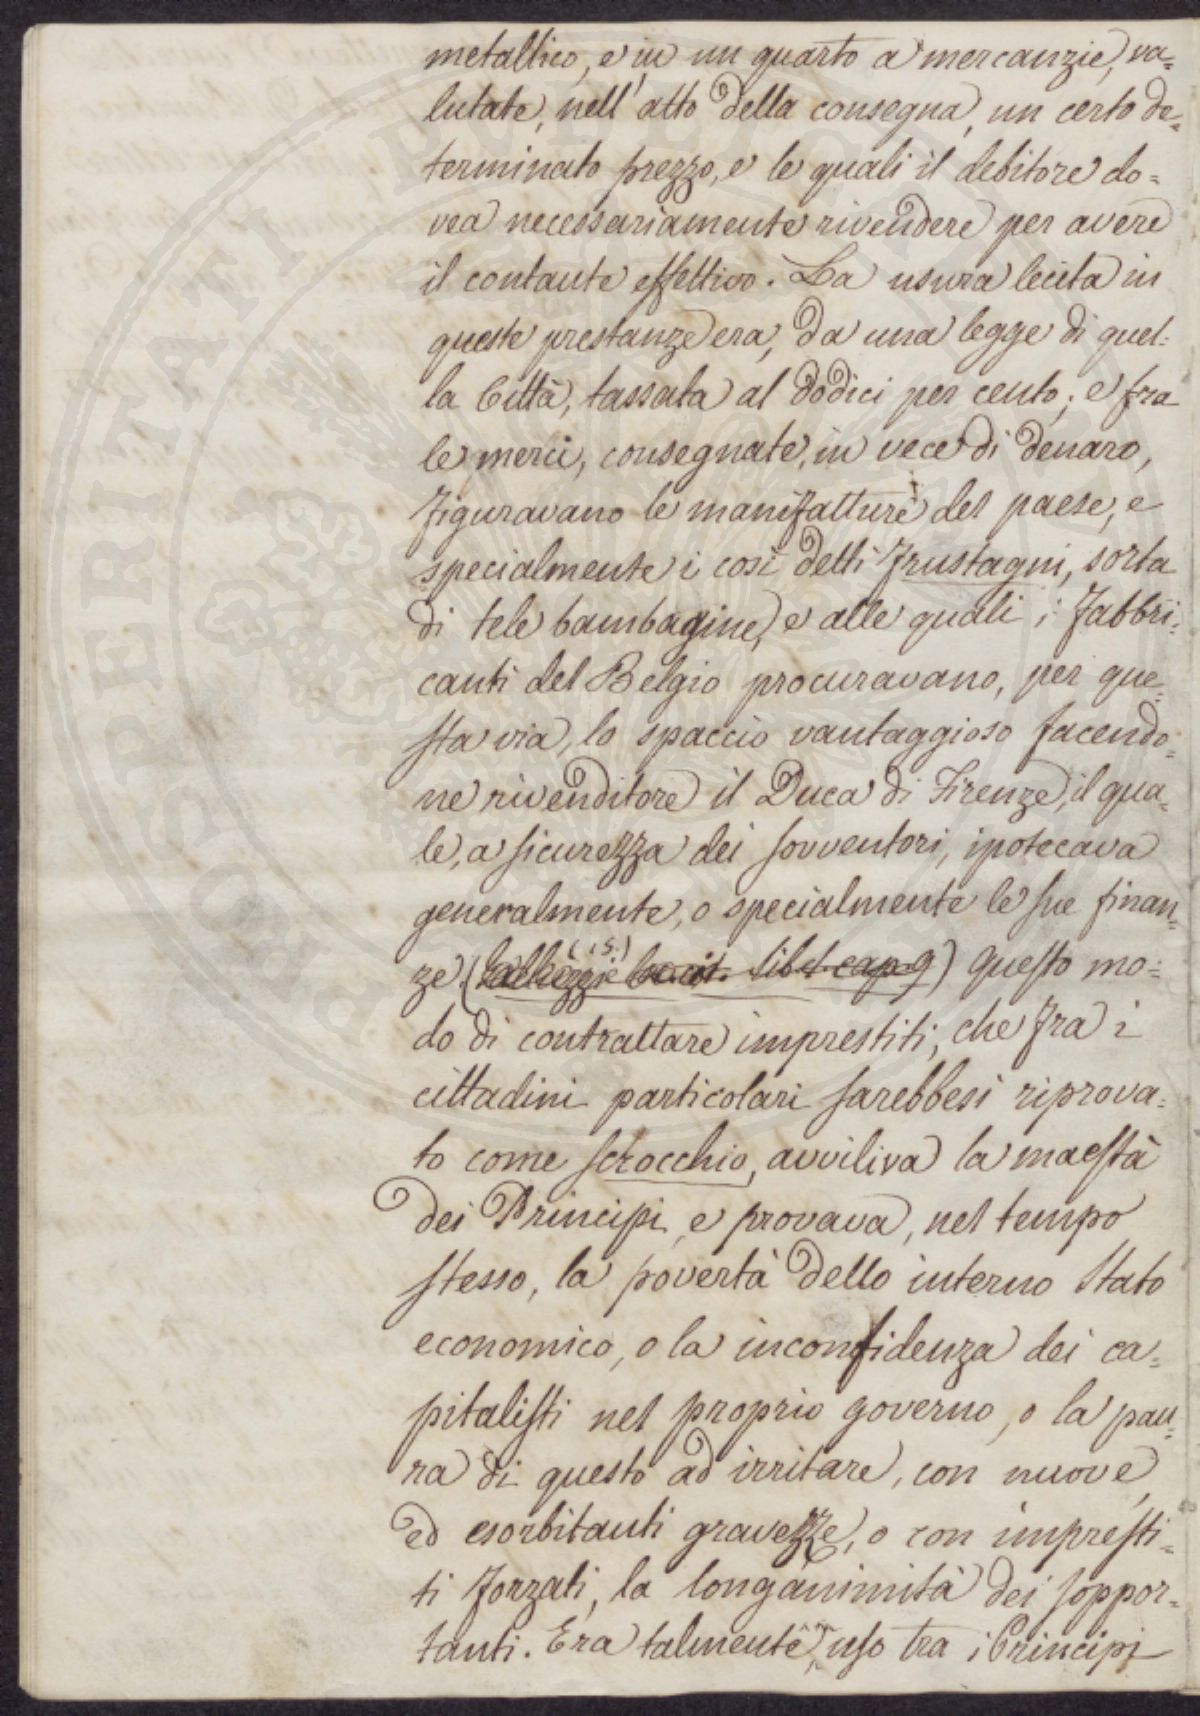 metallico, e in un quarto a mercanzie, va=
lutate, nell'atto della consegna, un certo de=
terminato prezzo, e le quali il debitore do=
vea necessariamente rivendere per avere
il contante effettivo. La usura lecita in
queste prestanze era, da una legge di quel=
la Città, tassata al dodici per cento; e fra
le merci, consegnate, in vece di denaro,
figuravano le manifatture del paese, e
specialmente i così detti frustagni, sorta
di tele bambagine, e alle quali i fabbri=
canti del Belgio procuravano, per que=
sta via, lo spaccio vantaggioso facendo=
ne rivenditore il Duca di Firenze, il qua=
le, a sicurezza dei sovventori, ipotecava
generalmente, o specialmente le sue finan=
ze (15.) ( loc. cit. lib. 1. cap. 9) questo mo=
do di contrattare imprestiti, che fra i
cittadini particolari sarebbesi riprova=
to come scrocchio, avviliva la maestà
dei Principi, e provava, nel tempo
stesso, la povertà dello interno stato
economico, o la inconfidenza dei ca=
pitalisti nel proprio governo, o la pau=
ra di questo ad irritare, con nuove,
ed esorbitanti gravezze, o con impresti=
ti forzati, la longanimità dei soppor=
tanti. Era talmente in uso tra i Principi
PROSPERITATI PUBLICAE